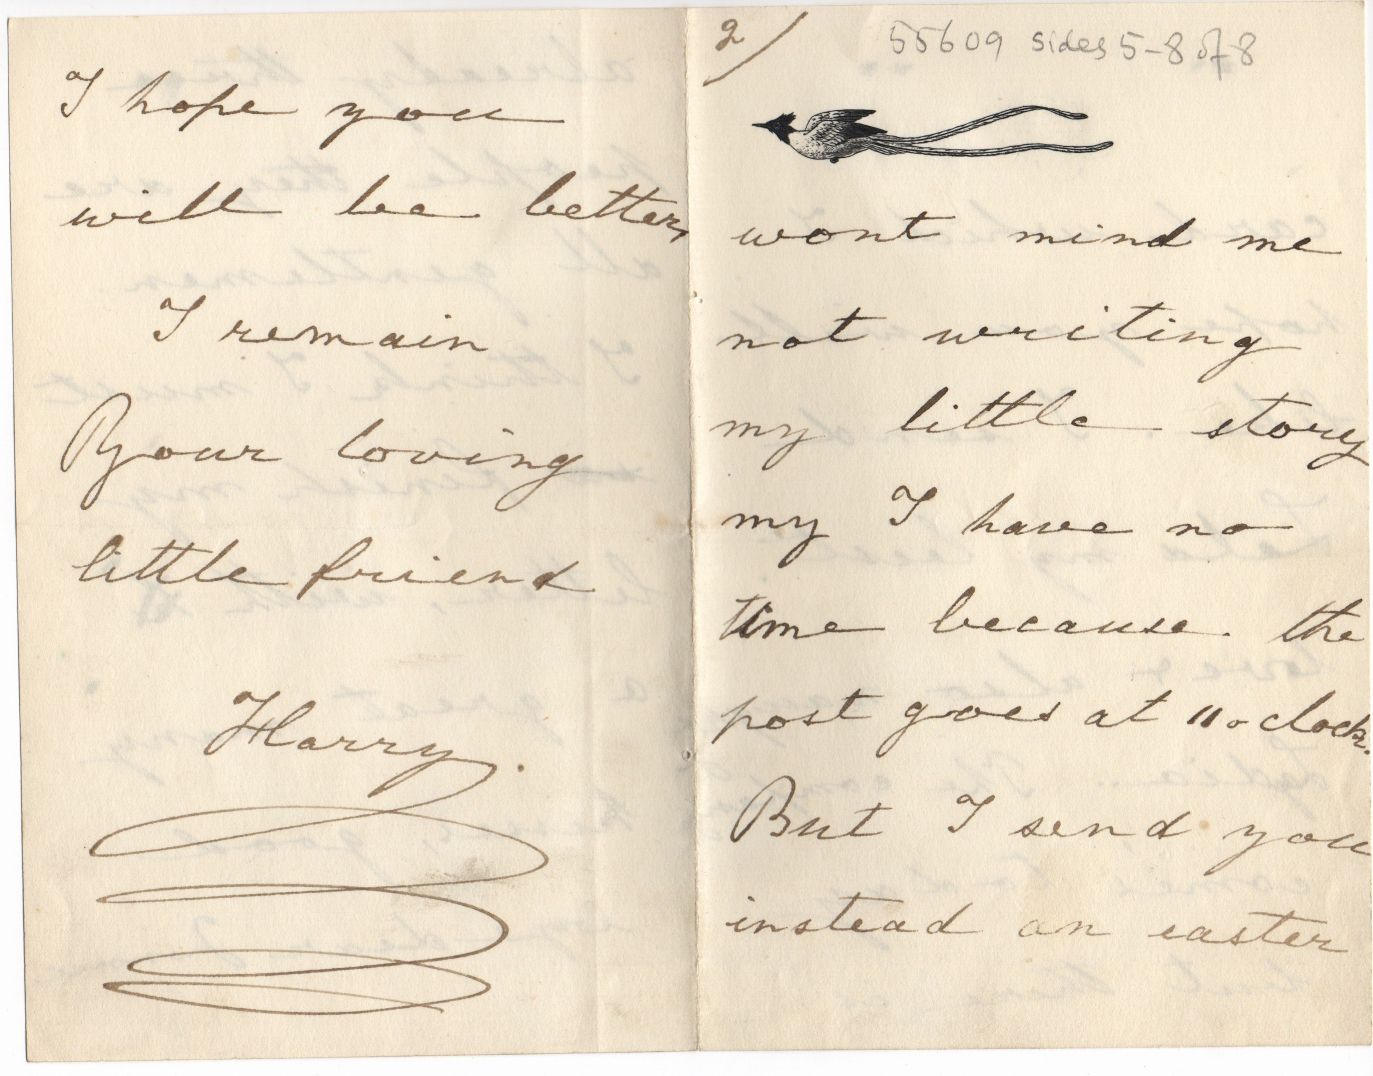 I hope you
will be better,
I remain
Your loving
little friend
Harry.
2/
55609 sides 5-8 of 8
wont mind me
not writing
my little story
my I have no
time because. the
post goes at 11 o clock.
But I send you
instead an easter